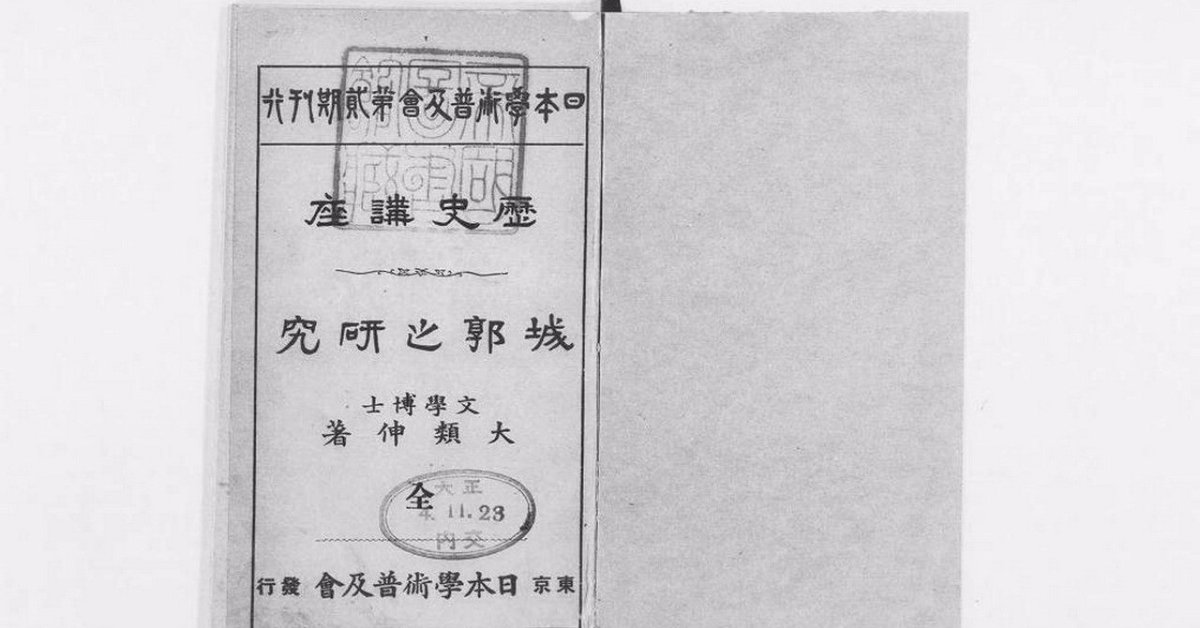 日本學術普及會第貳期刊行
歷史講座
城郭之研究
文學博士
大類伸著
全
大正
4.11.23
内交
東京 日本學術普及會 發行